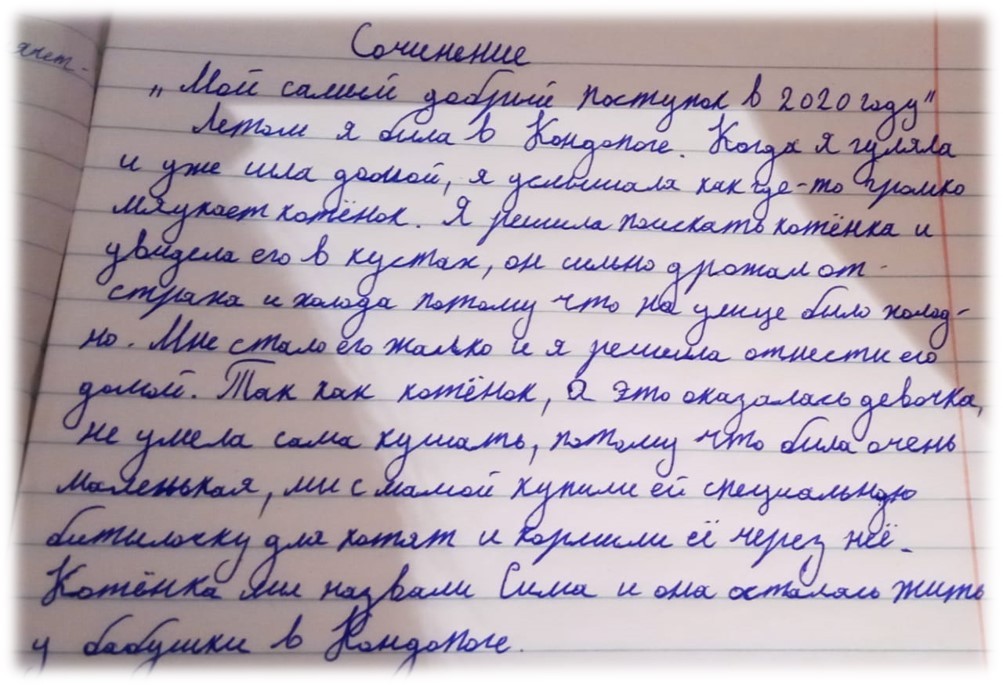 Сочинение
„Мой самый добрый поступок в 2020 году"
Летом я была в Кондопоге. Когда я гуляла
и уже шла домой, я услышала как где-то громко
мяукает котёнок. Я решила поискать котёнка и
увидела его в кустах, он сильно дрожал от
страха и холода потому что на улице было холод-
но. Мне стало его жалко и я решила отнести его
домой. Так как котёнок, а это оказалась девочка,
не умела сама кушать, потому что была очень
маленькая, мы с мамой купили ей специальную
бутылочку для котят и кормили её через неё.
Котёнка мы назвали Сима и она осталась жить
у бабушки в Кондопоге.